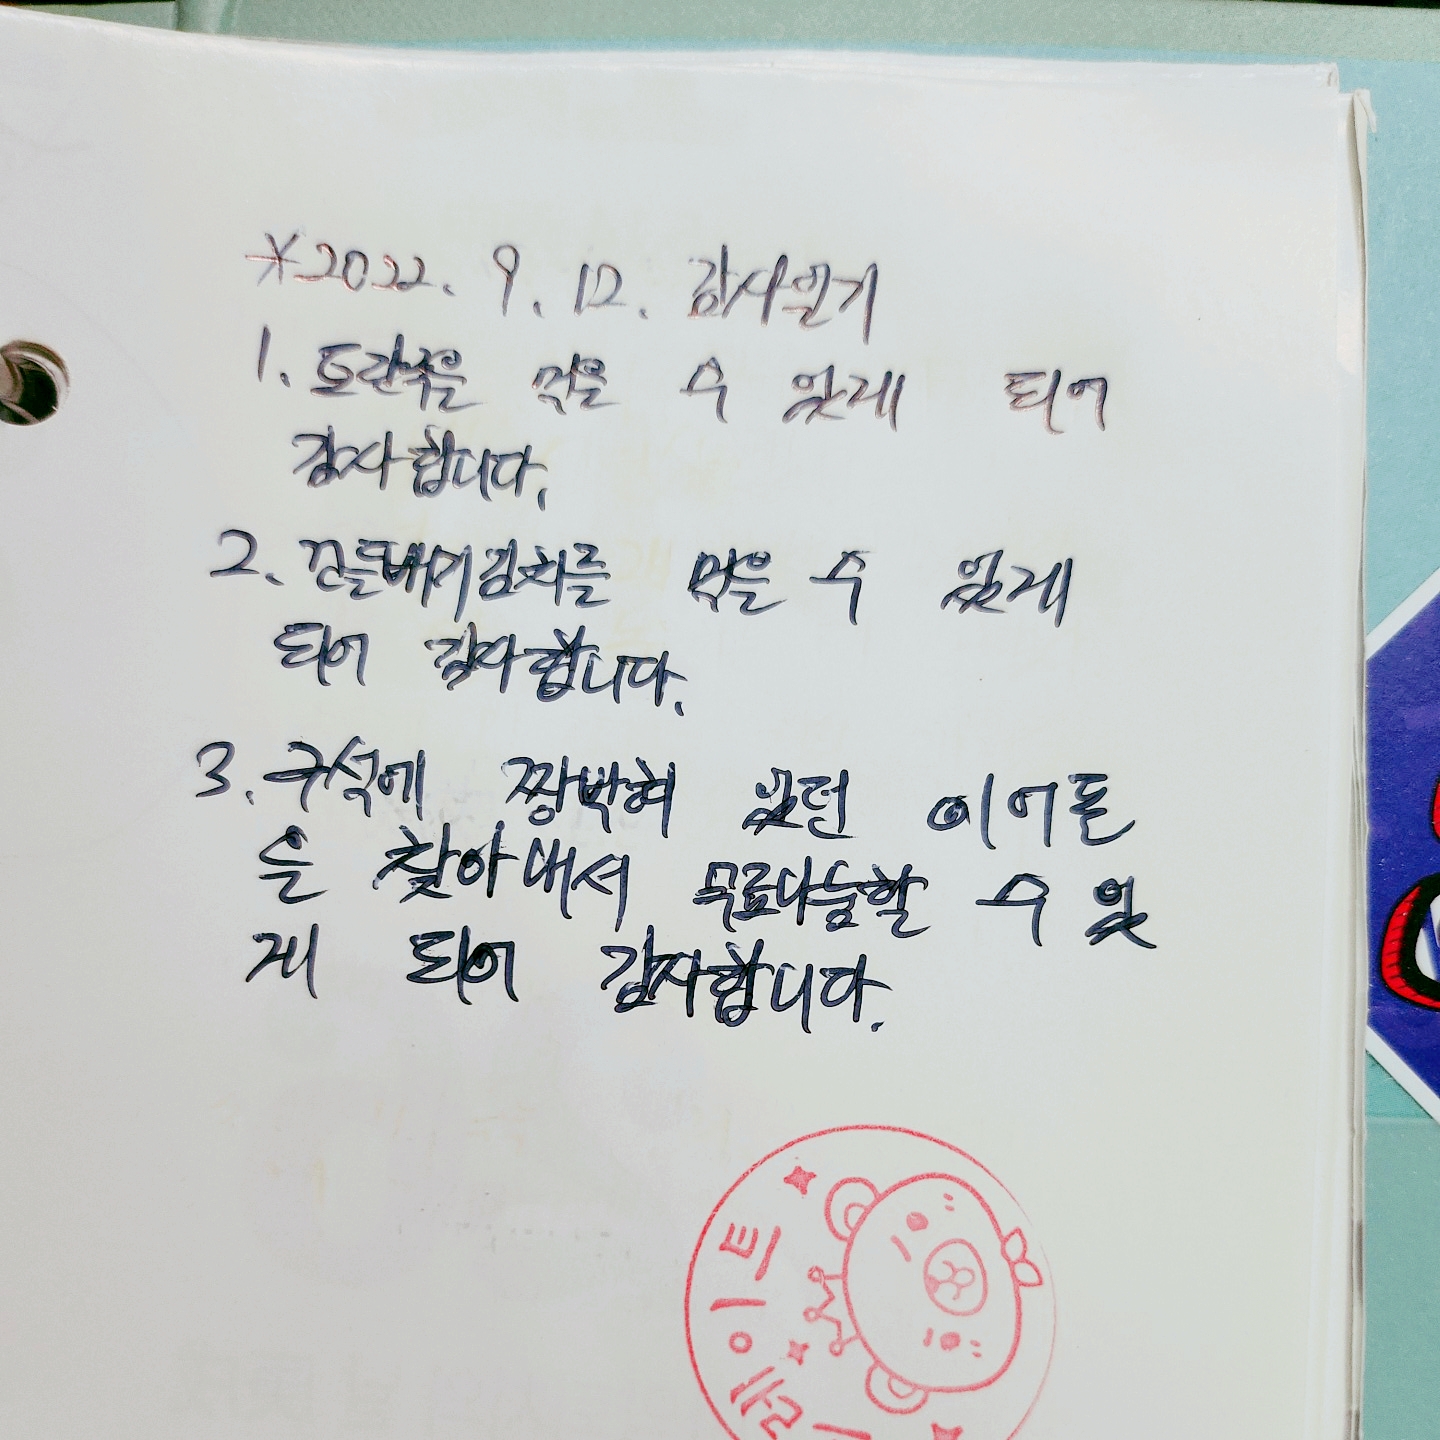 *2022. 9. 12. 감사일기
1. 토란국을 먹을 수 있게 되어
감사합니다.
2. 고들빼기김치를 먹을 수 있게
되어 감사합니다.
3. 구석에 짱박혀 있던 이어폰
을 찾아내서 무료나눔할 수 있
게 되어 감사합니다.